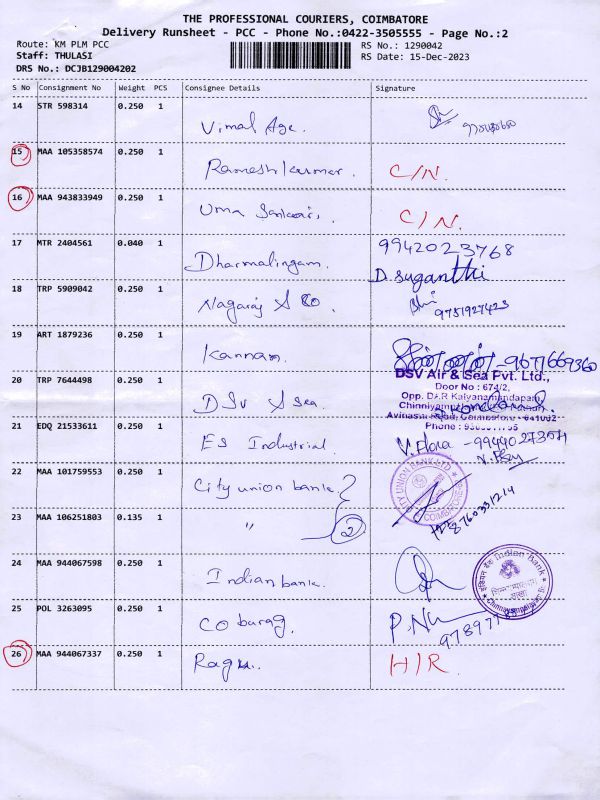 THE PROFESSIONAL COURIERS, COIMBATORE
Delivery Runsheet - PCC - Phone No.:0422-3505555 - Page No.:2
Route: KM PLM PCC
RS No.: 1290042
Staff: THULASI
RS Date: 15-Dec-2023
DRS No.: DCJB129004202
S No Consignment No Weight PCS Consignee Details Signature
14 STR 598314 0.250 1
Vimal Age.
15 MAA 105358574 0.250 1
Rameshkumar. C/N.
16 MAA 943833949 0.250 1
Uma C/N.
17 MTR 2404561 0.040 1
9942023768
Dharmalingam. D. Suganthi
18 TRP 5909042 0.250 1
Nagaraj & Co. 9751927423
19 ART 1879236 0.250 1
Kannan. -9677669360
DSV Air & Sea Pvt. Ltd.,
20 TRP 7644498 0.250 1
Door No : 674/2,
Opp. D.A.R Kalyanamandapam,
DSV & Sea.
Avinashi Road, Coimbatore - 641062
21 EDQ 21533611 0.250 1
Phone :
ES Industrial. V. Flora
22 MAA 101759553 0.250 1
CITY UNION BANK LTD
COIMBATORE
City union bank 2
23 MAA 106251803 0.135 1
" 8760331214
24 MAA 944067598 0.250 1
Indian Bank
Indian bank.
25 POL 3263095 0.250 1
Coburag. P.
26 MAA 944067337 0.250 1
Ragu. H/R.